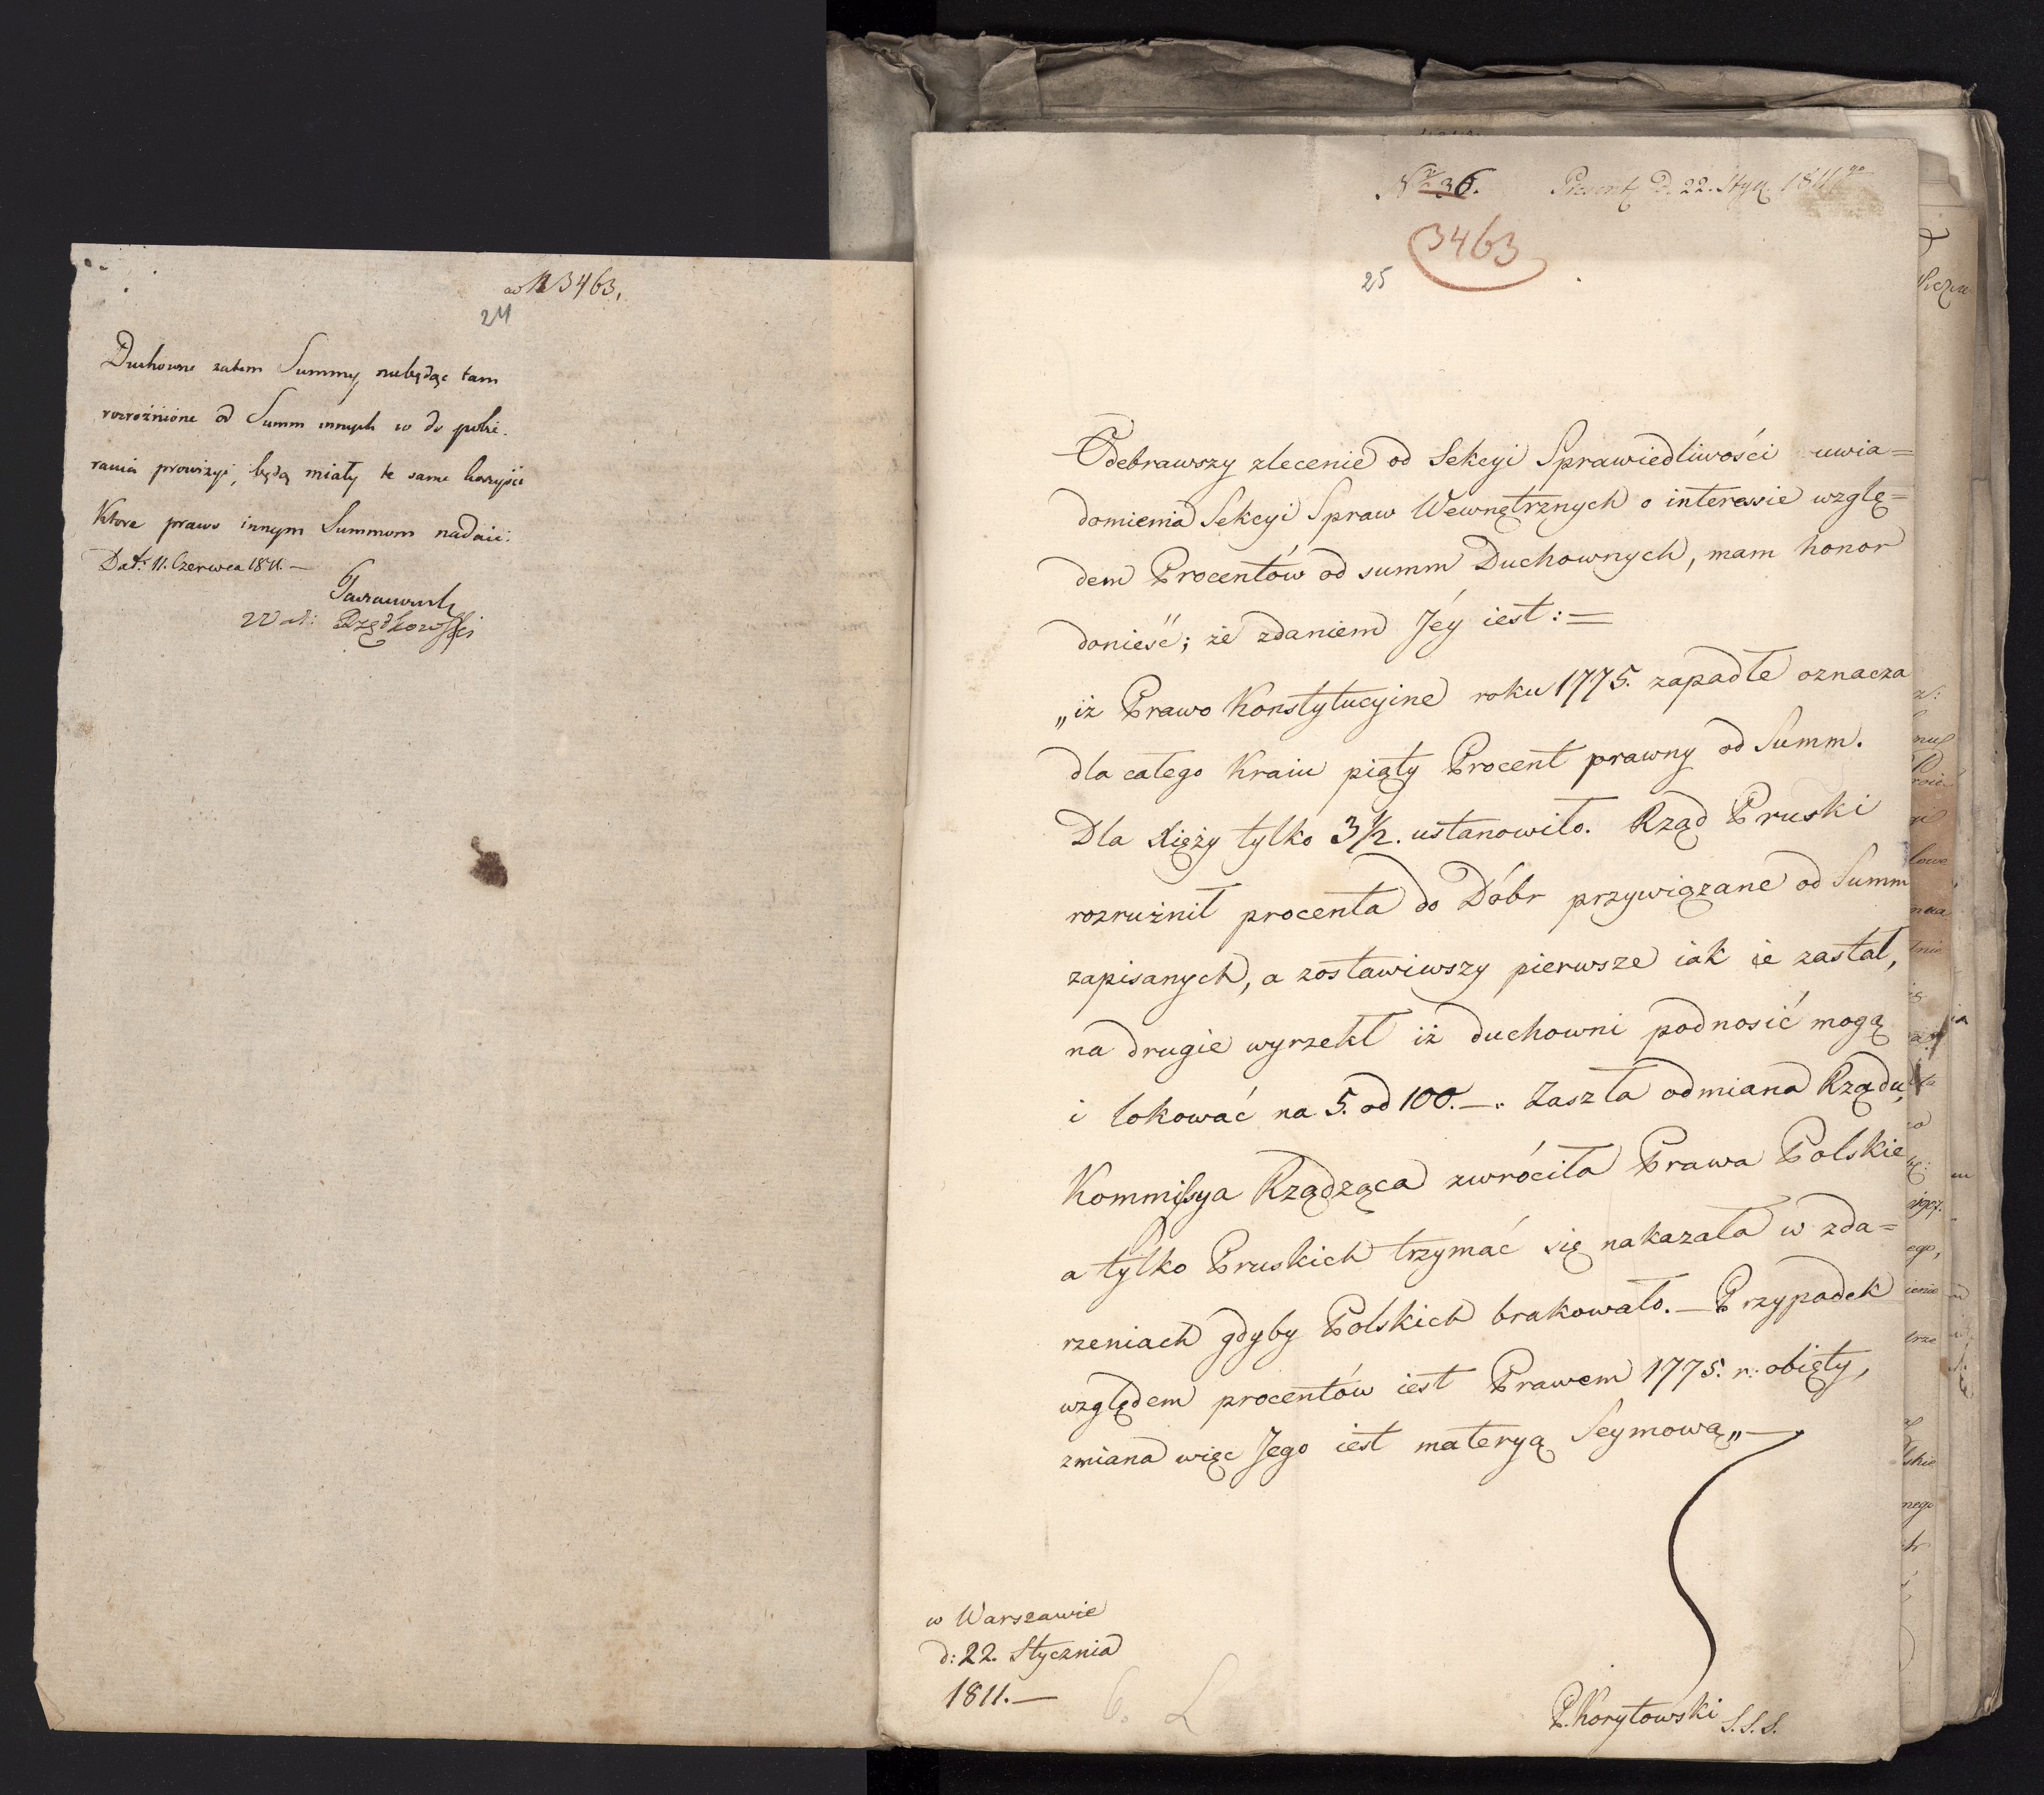 ad N 3463,
24
Duchowne zatem Summy, niebędąc tam
rozroźnione od Summ innych co do pobie-
rania prowizyi, będą miały te same korzyści
Ktore prawo innym Summom nadaie:
Dat: 11. Czerwca 1811. —
Nº 36. Present d. 22. Stycz. 1811go
3463
25
Odebrawszy zlecenie od Sekcyi Sprawiedliwości uwia=
domienia Sekcyi Spraw Wewnętrznych o interessie wzglę=
dem Procentów od summ Duchownych, mam honor
donieść; że zdaniem Jéy iest: =
„iż Prawo Konstytucyine roku 1775. zapadłe oznacza
dla całego Kraiu piąty Procent prawny od Summ.
Dla Xięży tylko 3½. ustanowiło. Rząd Pruski
rozrużnił procenta do Dóbr przywiązane od Summ
zapisanych, a zostawiwszy pierwsze iak ie zastał,
na drugie wyrzekł iż duchowni podnosić mogą
i lokować na 5. od 100. —. Zaszła odmiana Rządu,
Kommissya Rządząca zwróciła Prawa Polskie
a tylko Pruskich trzymać się nakazała w zda=
rzeniach gdyby Polskich brakowało. — Przypadek
względem procentów iest Prawem 1775. r: obięty,
zmiana więc Jego iest materyą Seymową„ —
w Warszawie
d: 22. Stycznia
1811. —
P. Korytowski S.S.S.